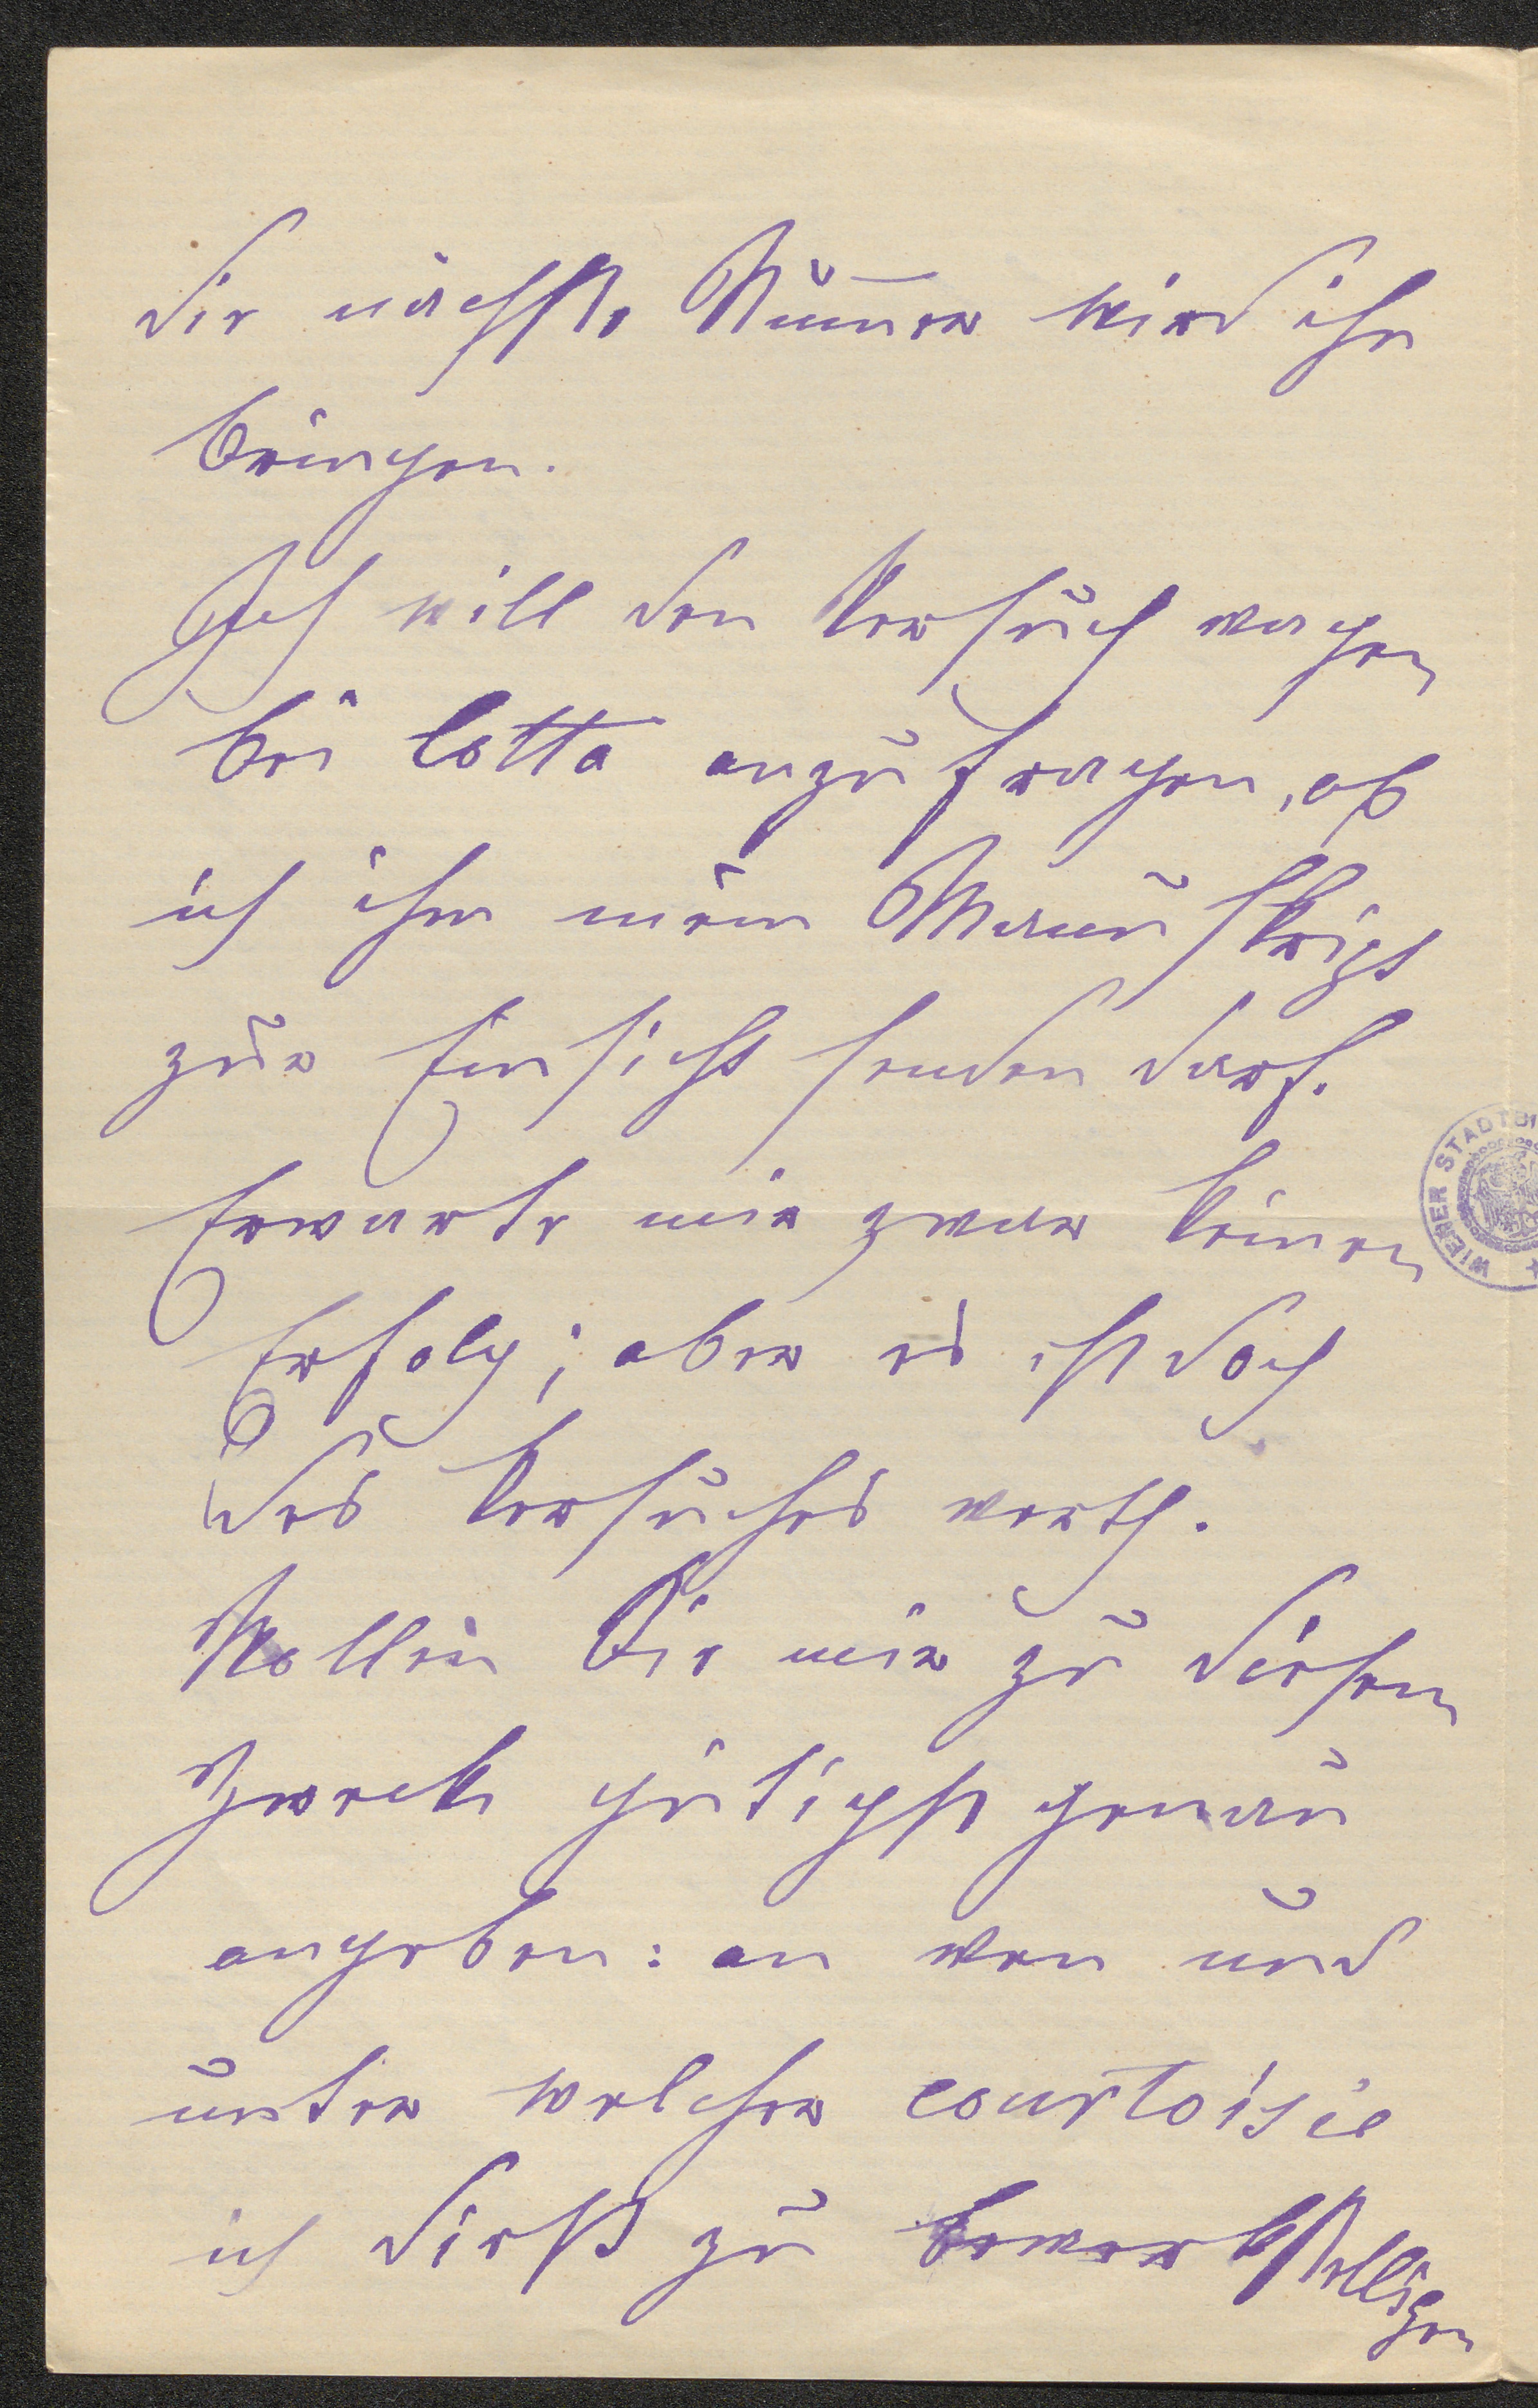 die nächste Num̄er wird ihn
bringen.
Ich will den Versuch wagen
bei Cotta anzufragen, ob
ich ihm mein Manuskript
zur Einsicht senden darf.
Erwarte mir zwar keinen
Erfolg; aber es ist doch
des Versuches werth.
Wollen Sie mir zu diesem
Zwecke gütigst genau
angeben: an wen und
unter welcher courtoisie
ich dieß zu bewerkstelligen
WIENER STADTBI